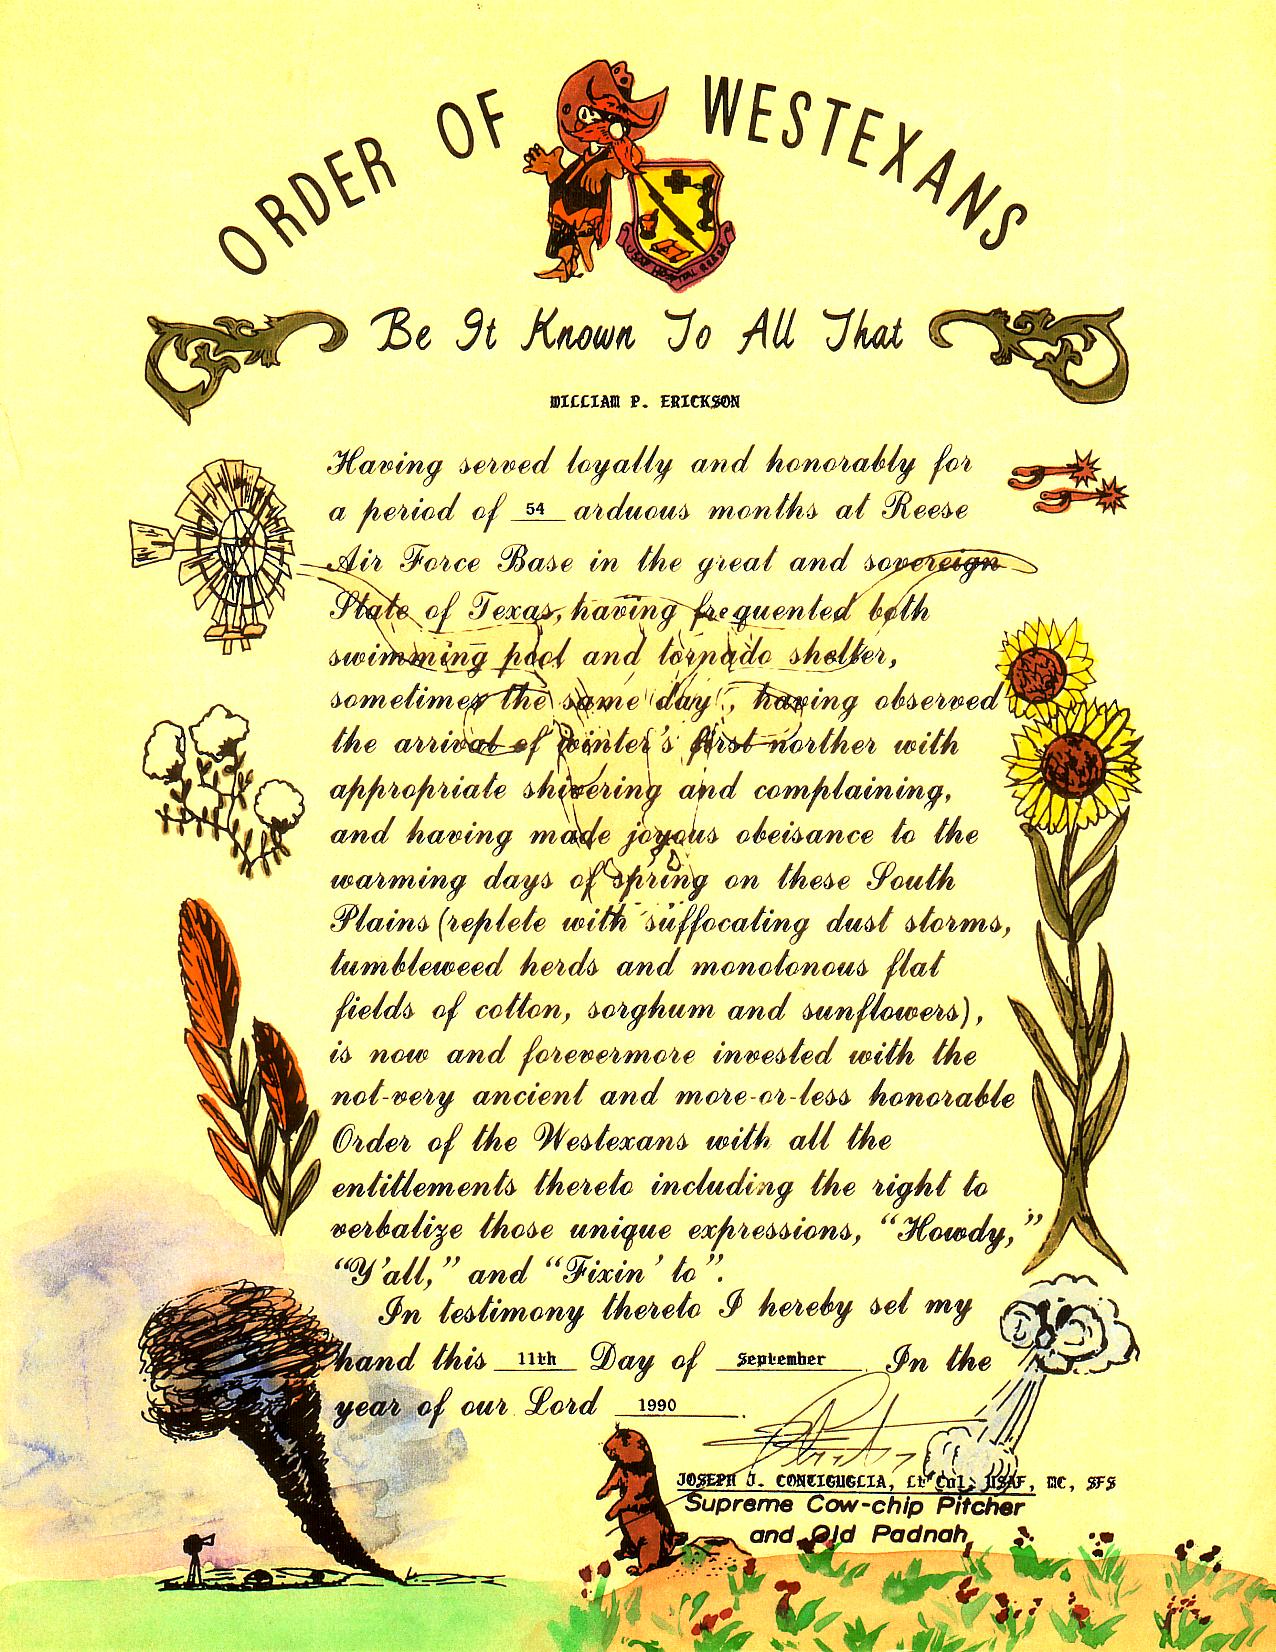 ORDER OF WESTEXANS
USAF HOSPITAL REESE
Be It Known To All That
WILLIAM P. ERICKSON
Having served loyally and honorably for
a period of 54 arduous months at Reese
Air Force Base in the great and sovereign
State of Texas, having frequented both
swimming pool and tornado shelter,
sometimes the same day, having observed
the arrival of winter's first norther with
appropriate shivering and complaining,
and having made joyous obeisance to the
warming days of spring on these South
Plains (replete with suffocating dust storms,
tumbleweed herds and monotonous flat
fields of cotton, sorghum and sunflowers),
is now and forevermore invested with the
not-very ancient and more-or-less honorable
Order of the Westexans with all the
entitlements thereto including the right to
verbalize those unique expressions, "Howdy,"
"Y'all," and "Fixin' to".
In testimony thereto I hereby set my
hand this 11th Day of September In the
year of our Lord 1990.
JOSEPH J. CONTIGUGLIA, Lt Col, USAF, MC, SFS
Supreme Cow-chip Pitcher
and Old Padnah